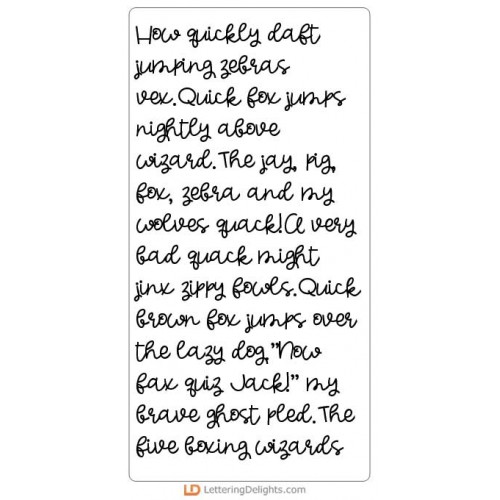 How quickly daft
jumping zebras
vex.Quick fox jumps
nightly above
wizard.The jay, pig,
fox, zebra and my
wolves quack!A very
bad quack might
jinx zippy fowls.Quick
brown fox jumps over
the lazy dog."Now
fax quiz Jack!" my
brave ghost pled.The
five boxing wizards
LD LetteringDelights.com